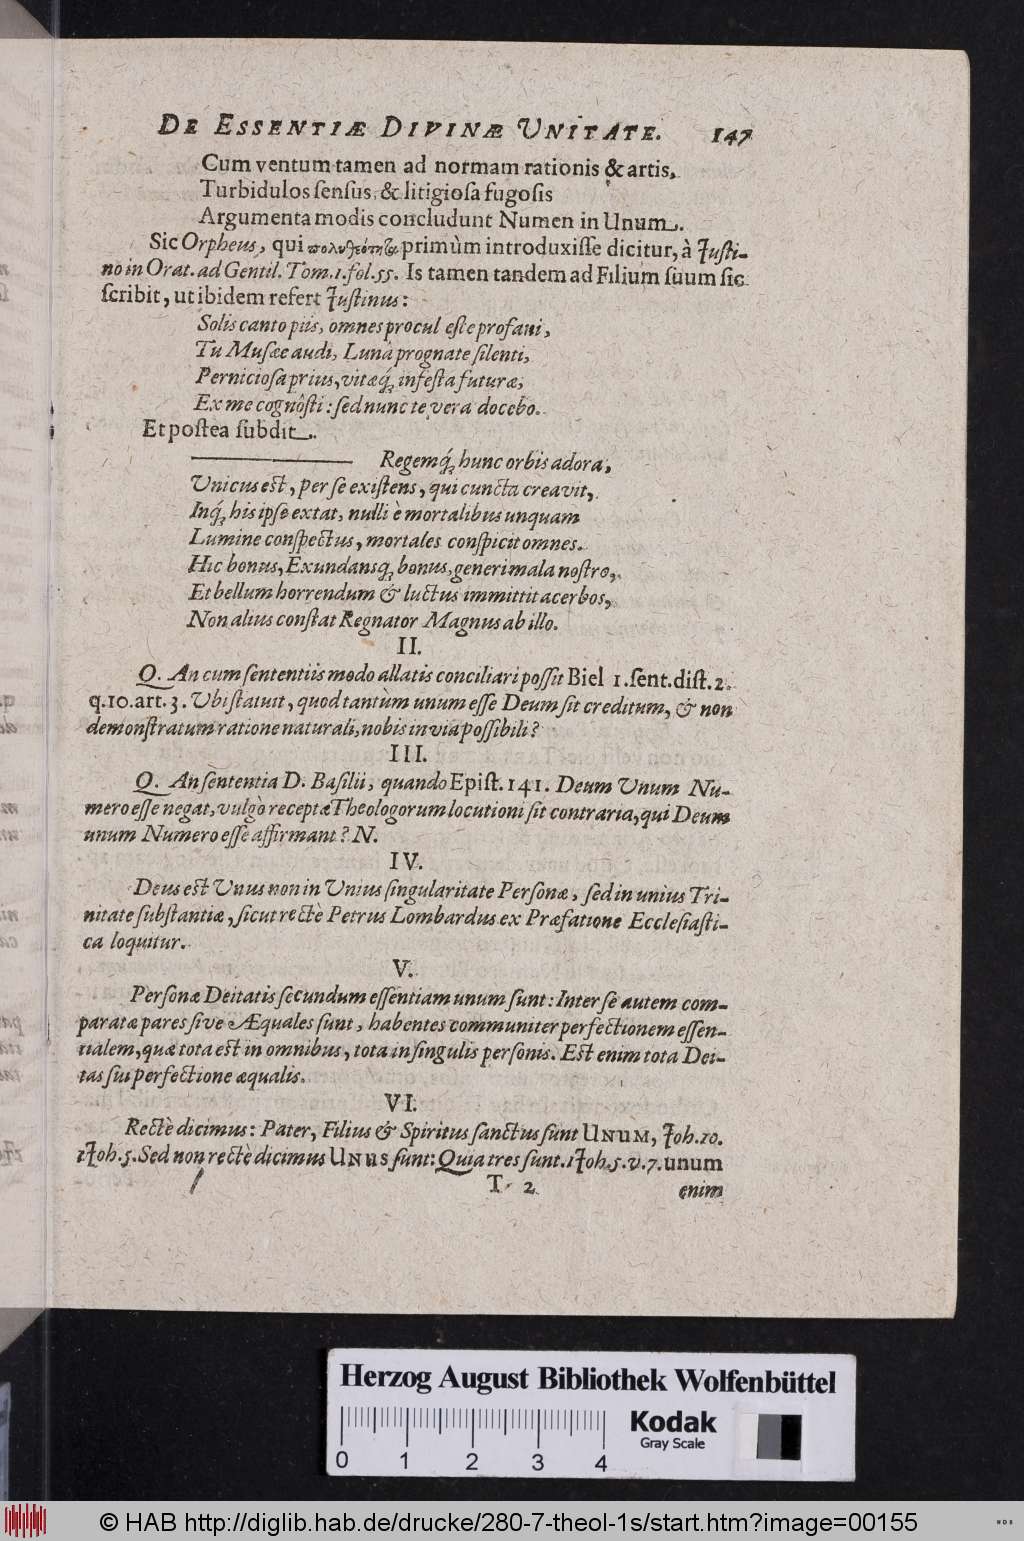 DE ESSENTIÆ DIVINÆ UNITATE. 147
Cum ventum tamen ad normam rationis & artis,
Turbidulos ſenſus, & litigioſa fugoſis
Argumenta modis concludunt Numen in Unum.
Sic Orpheus, qui primùm introduxiſſe dicitur, à Juſti-
no in Orat. ad Gentil. Tom. 1. fol. 55. Is tamen tandem ad Filium ſuum ſic
ſcribit, ut ibidem refert Juſtinus:
Solis canto piis, omnes procul eſte profani,
Tu Muſæe audi, Lunâ prognate ſilenti,
Pernicioſa prius, vitæq́; infeſta futuræ,
Ex me cognôſti: ſed nunc te vera docebo.
Et poſtea ſubdit.
Regemq́; hunc orbis adora,
Unicus eſt, per ſe exiſtens, qui cuncta creavit,
Inq́; his ipſe extat, nulli è mortalibus unquam
Lumine conſpectus, mortales conſpicit omnes.
Hic bonus, Exundansq́; bonus, generi mala noſtro,
Et bellum horrendum & luctus immittit acerbos,
Non alius conſtat Regnator Magnus ab illo.
II.
Q. An cum ſententiis modo allatis conciliari poſſit Biel 1. ſent. diſt. 2.
q. 10. art. 3. Ubi ſtatuit, quod tantùm unum eſſe Deum ſit creditum, & non
demonſtratum ratione naturali, nobis in via poſſibili?
III.
Q. An ſententia D. Baſilii, quando Epiſt. 141. Deum Unum Nu-
mero eſſe negat, vulgò receptæ Theologorum locutioni ſit contraria, qui Deum
unum Numero eſſe affirmant? N.
IV.
Deus eſt Unus non in Unius ſingularitate Perſonæ, ſed in unius Tri-
nitate ſubſtantiæ, ſicut rectè Petrus Lombardus ex Præfatione Eccleſiaſti-
ca loquitur.
V.
Perſonæ Deitatis ſecundum eſſentiam unum ſunt: Inter ſe autem com-
paratæ pares ſive Æquales ſunt, habentes communiter perfectionem eſſen-
tialem, quæ tota eſt in omnibus, tota in ſingulis perſonis. Eſt enim tota Dei-
tas ſui perfectione æqualis.
VI.
Rectè dicimus: Pater, Filius & Spiritus ſanctus ſunt UNUM, Joh. 10.
1 Joh. 5. Sed non rectè dicimus UNUS ſunt: Quia tres ſunt. 1 Joh. 5. v. 7. unum
T 2 enim
Herzog August Bibliothek Wolfenbüttel
0 1 2 3 4
Kodak
Gray Scale
© HAB http://diglib.hab.de/drucke/280-7-theol-1s/start.htm?image=00155